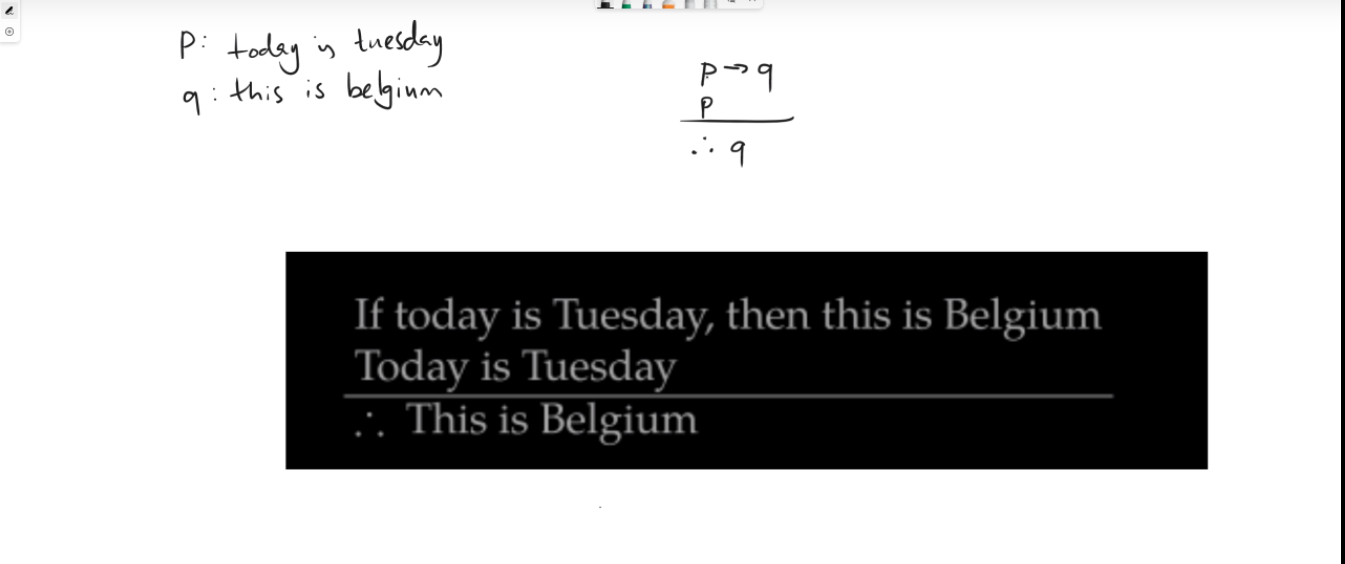 p: today is tuesday
q: this is belgium
p → q
p
∴ q
If today is Tuesday, then this is Belgium
Today is Tuesday
∴ This is Belgium